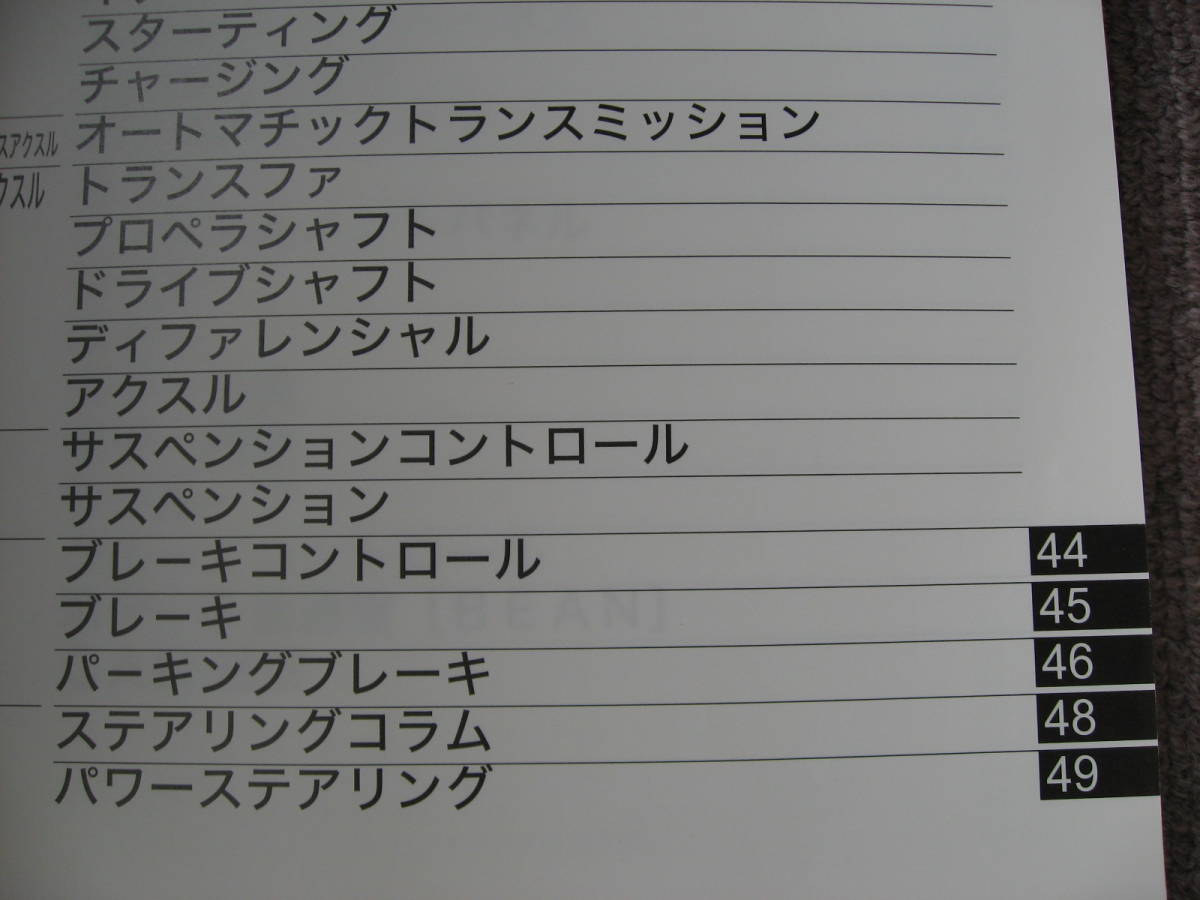 スターティング
チャージング
スアクスル オートマチックトランスミッション
クスル トランスファ
プロペラシャフト
ドライブシャフト
ディファレンシャル
アクスル
サスペンションコントロール
サスペンション
ブレーキコントロール 44
ブレーキ 45
パーキングブレーキ 46
ステアリングコラム 48
パワーステアリング 49
パネル
[BEAN]